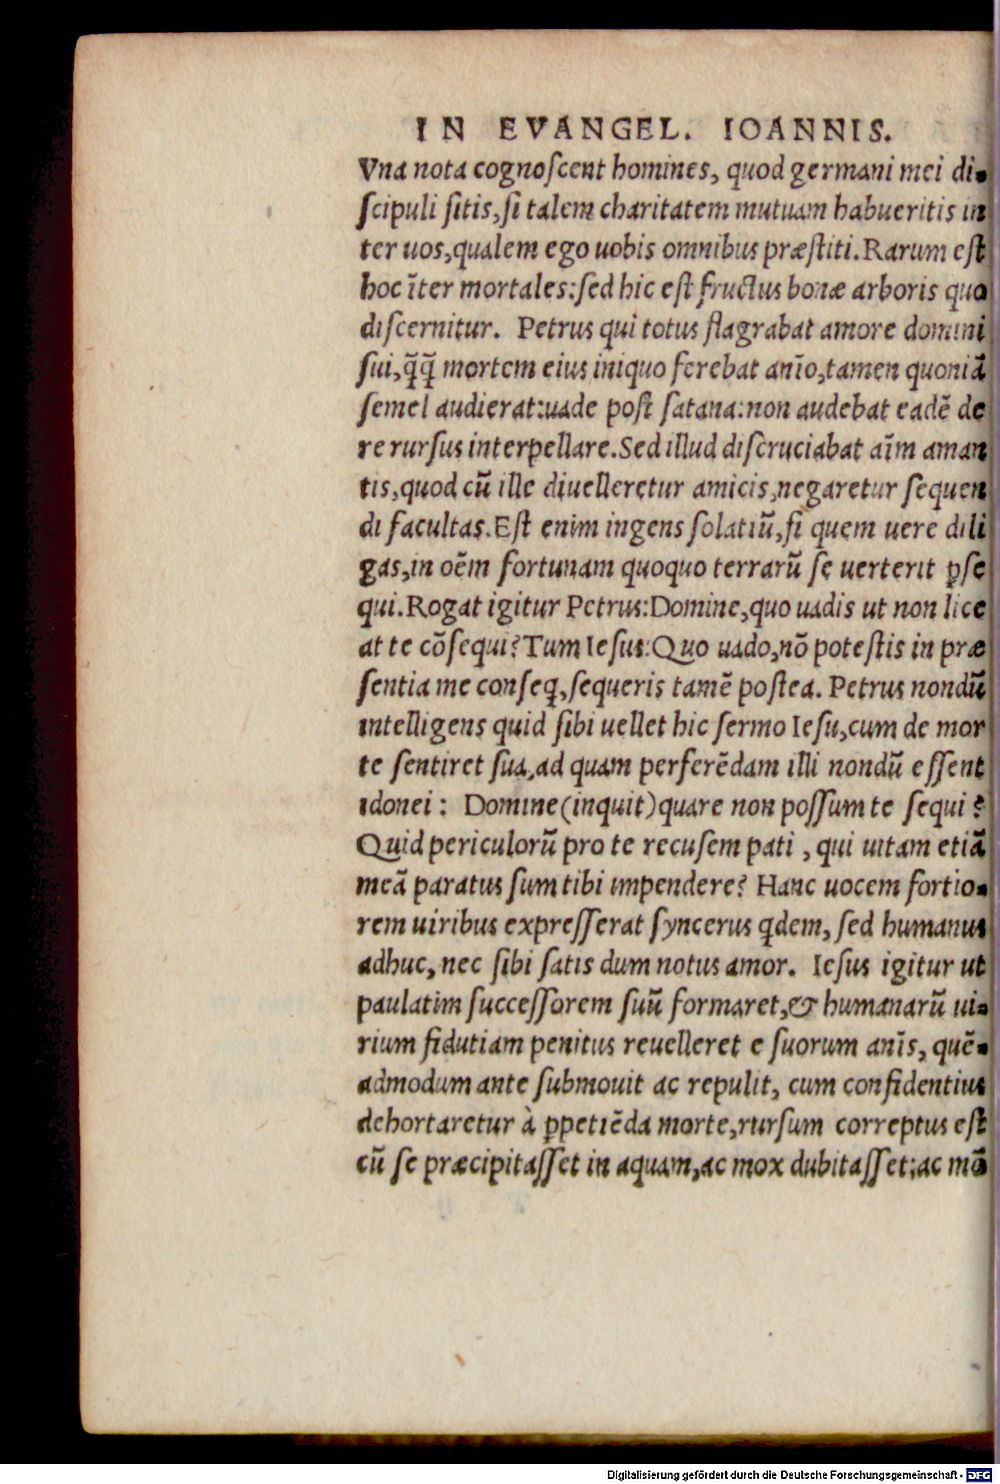 IN EVANGEL. IOANNIS.
Vna nota cognoſcent homines, quod germani mei di-
ſcipuli ſitis,ſi talem charitatem mutuam habueritis in
ter uos,qualem ego uobis omnibus præſtiti.Rarum eſt
hoc īter mortales:ſed hic eſt fructus bonæ arboris quo
diſcernitur. Petrus qui totus flagrabat amore domini
ſui,q̃q̃ mortem eius iniquo ferebat anīo,tamen quoniã
ſemel audierat:uade poſt ſatana:non audebat eadē de
re rurſus interpellare.Sed illud diſcruciabat aīm aman
tis,quod cũ ille diuelleretur amicis,negaretur ſequen
di facultas.Eſt enim ingens ſolatiũ,ſi quem uere dili
gas,in oēm fortunam quoquo terrarũ ſe uerterit ꝑſe
qui.Rogat igitur Petrus:Domine,quo uadis ut non lice
at te cõſequi?Tum Ieſus:Quo uado,nõ poteſtis in præ
ſentia me conſeq,ſequeris tamē poſtea. Petrus nondũ
intelligens quid ſibi uellet hic ſermo Ieſu,cum de mor
te ſentiret ſua,ad quam perferēdam illi nondũ eſſent
idonei: Domine(inquit)quare non poſſum te ſequi?
Quid periculorũ pro te recuſem pati , qui uitam etiã
meã paratus ſum tibi impendere? Hanc uocem fortio-
rem uiribus expreſſerat ſyncerus q̃dem, ſed humanus
adhuc, nec ſibi ſatis dum notus amor. Ieſus igitur ut
paulatim ſucceſſorem ſuũ formaret,& humanarũ ui-
rium fidutiam penitus reuelleret e ſuorum anīs, quē-
admodum ante ſubmouit ac repulit, cum confidentius
dehortaretur à ꝑpetiēda morte,rurſum correptus eſt
cũ ſe præcipitaſſet in aquam,ac mox dubitaſſet:ac mõ
Digitalisierung gefördert durch die Deutsche Forschungsgemeinschaft - DFG